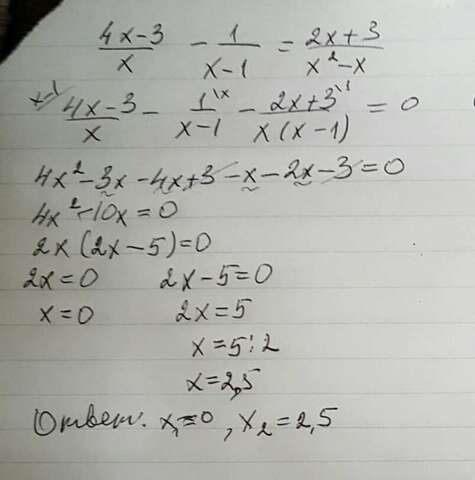 (4x-3)/x - 1/(x-1) = (2x+3)/(x²-x)
x-1/ (4x-3)/x - 1\x/(x-1) - (2x+3)\1/(x(x-1)) = 0
4x²-3x-4x+3-x-2x-3=0
4x²-10x=0
2x(2x-5)=0
2x=0 2x-5=0
x=0 2x=5
x=5:2
x=2,5
Ответ. x₁=0, x₂=2,5